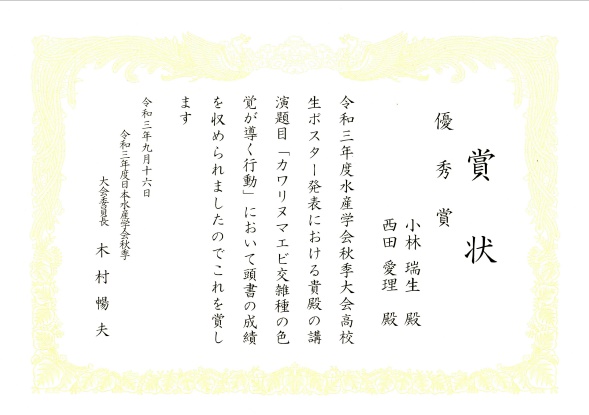 賞状
優秀賞
小林 瑞生 殿
西田 愛理 殿
令和三年度水産学会秋季大会高校
生ポスター発表における貴殿の講
演題目「カワリヌマエビ交雑種の色
覚が導く行動」において頭書の成績
を収められましたのでこれを賞し
ます
令和三年九月十六日
令和三年度日本水産学会秋季
大会委員長 木村 暢夫